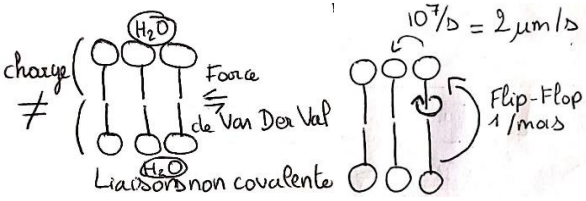 H₂O
charge
≠
Force
de Van Der Val
H₂O
Liaisons non covalente
10⁷/s = 2 μm/s
Flip-Flop
1/mois